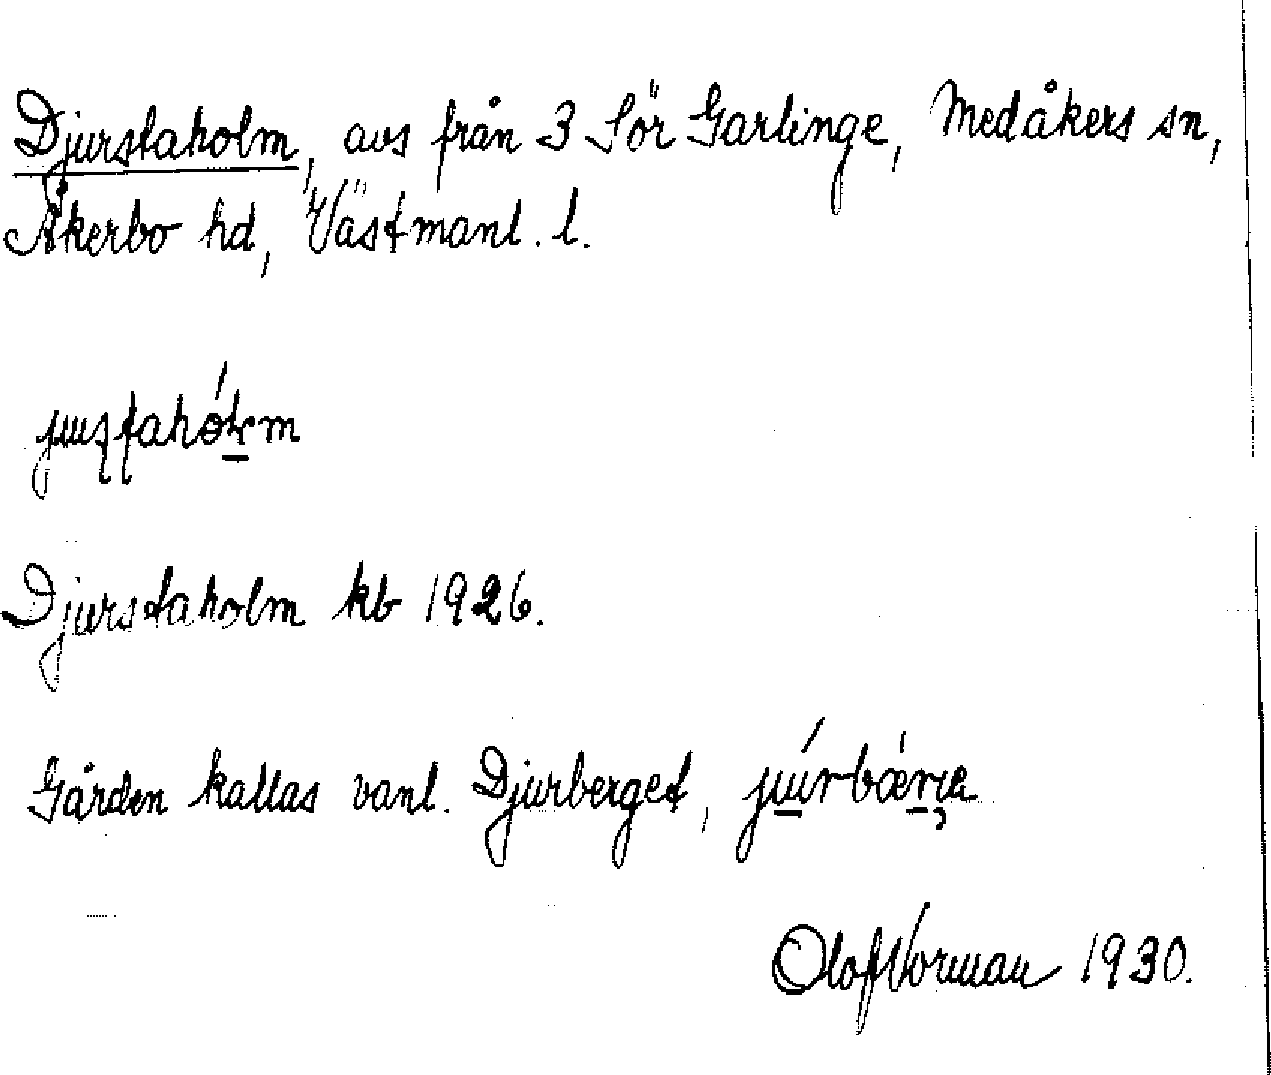 Djurstaholm, avs från 3 Sör Garlinge, Medåkers sn,
Åkerbo hd, Västmanl. l.
Djurstaholm kb 1926.
Gården kallas vanl. Djurberget,
Olof Vorman 1930.